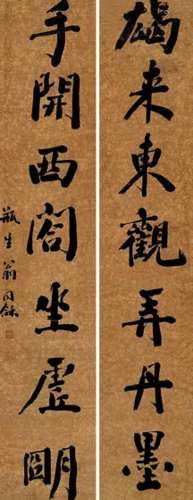 朅来東觀弄丹墨
手開西閣坐虛朙
瓶生翁同龢